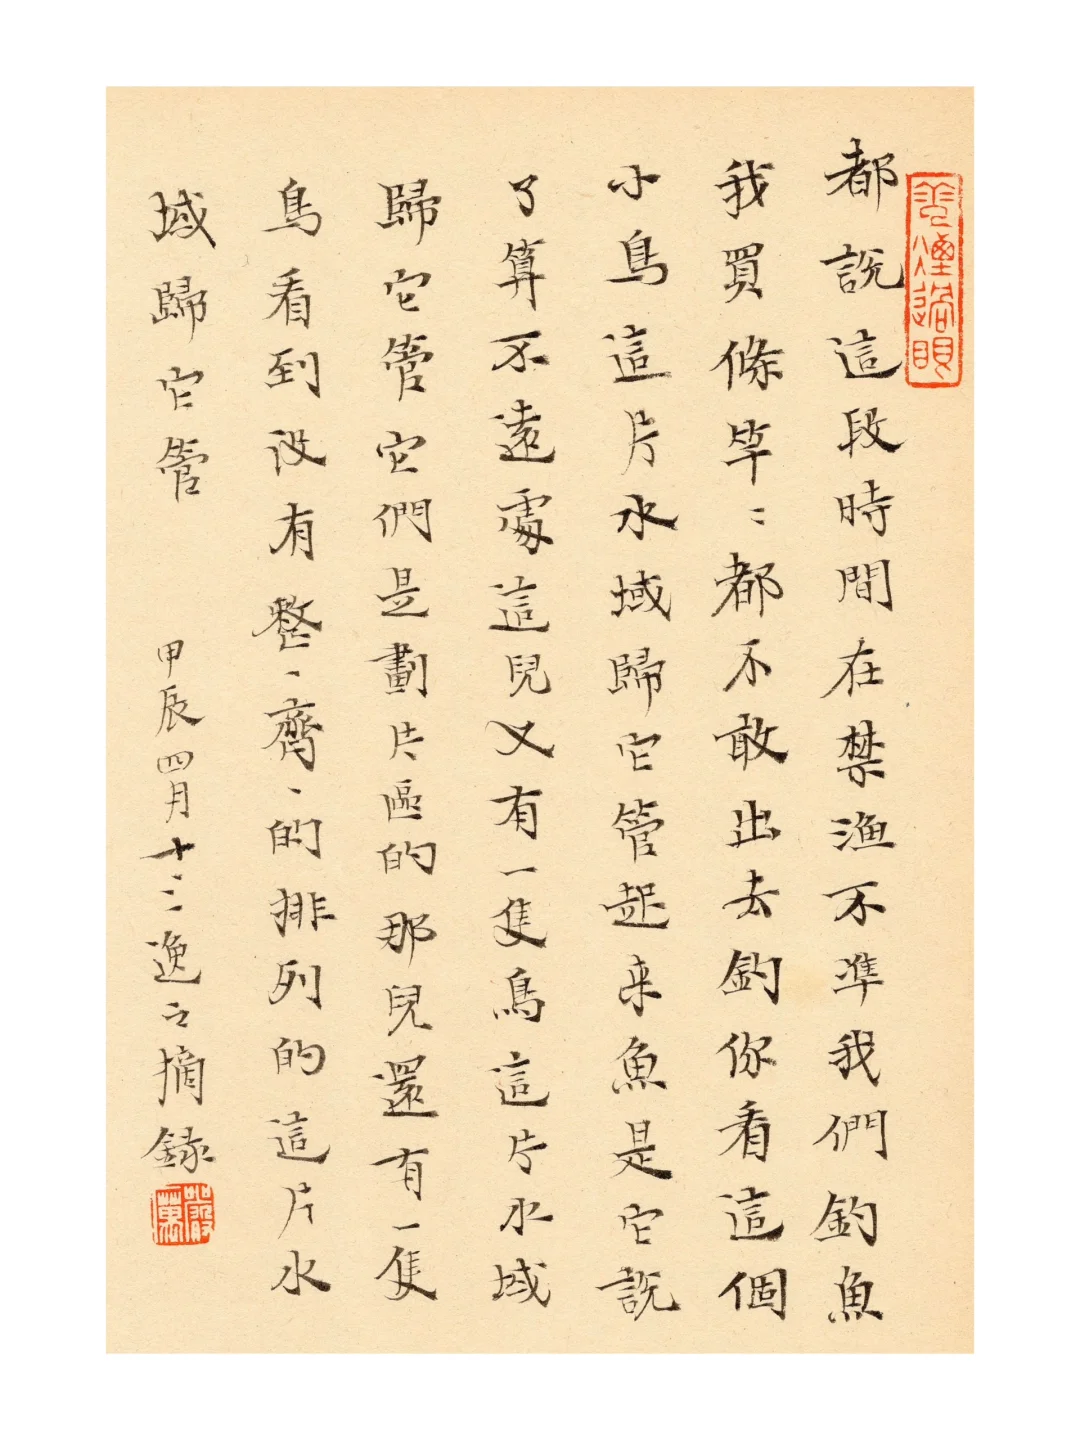 都說這段時間在禁渔不準我們釣魚
我買條竿〻都不敢出去釣你看這個
小鳥這片水域歸它管起来魚是它説
了算不遠處這兒又有一隻鳥這片水域
歸它管它們是劃片區的那兒還有一隻
鳥看到没有整〻齊〻的排列的這片水
域歸它管
甲辰四月十二逸之摘録